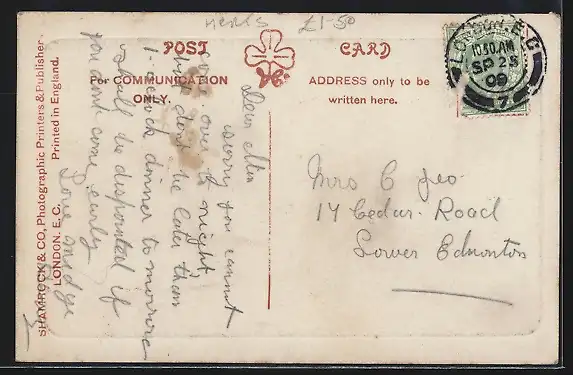 HERTS £1-50
POST CARD
For COMMUNICATION
ONLY.
ADDRESS only to be
written here.
LONDON. E.C
10.50 AM
SP 25
09
7
Dear
sorry you cannot
come over to night
but dont be later than
1- oclock dinner to morrow
shall be dispointed if
you dont come early
Love midge
Mrs C Geo
14 Cedar Road
Lower Edmonton
SHAMROCK & CO, Photographic Printers & Publishers.
LONDON. E.C. Printed in England.